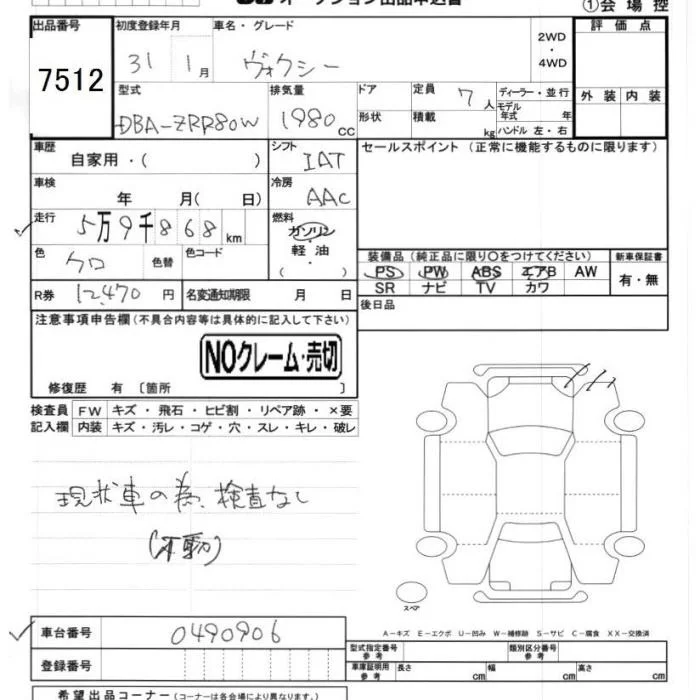 オークション出品申込書
①会場控
出品番号 初度登録年月 車名・グレード 評価点
7512 31 1月 ヴォクシー 2WD・4WD
型式 排気量 ドア 定員 7人 ディーラー・並行 外装 内装
DBA-ZRR80W 1980cc 形状 積載 kg モデル年式 年
ハンドル 左・右
車歴 シフト セールスポイント(正常に機能するものに限ります)
自家用・( ) IAT
車検 冷房
年 月( 日) AAC
走行 5万9千868km 燃料
ガソリン・軽油・( )
色 クロ 色替 色コード 装備品(純正品に限り○をつけてください) 新車保証書
PS PW ABS エアB AW 有・無
SR ナビ TV カワ
R券 12,470円 名変通知期限 月 日 後日品
注意事項申告欄(不具合内容等は具体的に記入して下さい)
NOクレーム・売切
修復歴 有 〔箇所 〕
検査員 FW キズ・飛石・ヒビ割・リペア跡・×要
記入欄 内装 キズ・汚レ・コゲ・穴・スレ・キレ・破レ
現状車の為、検査なし
(不動)
スペア
A-キズ E-エクボ U-凹み W-補修跡 S-サビ C-腐食 XX-交換済
車台番号 0490906 型式指定番号 参考 類別区分番号 参考
登録番号 車庫証明用 参考 長さ cm 幅 cm 高さ cm
希望出品コーナー(コーナーは各会場により異なります。)